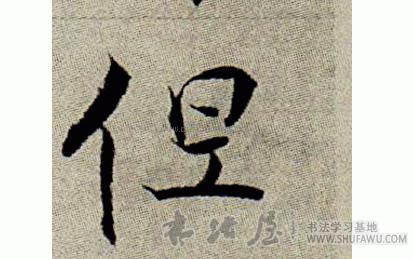 但
书法屋
书法学习基地
WWW.SHUFAWU.COM